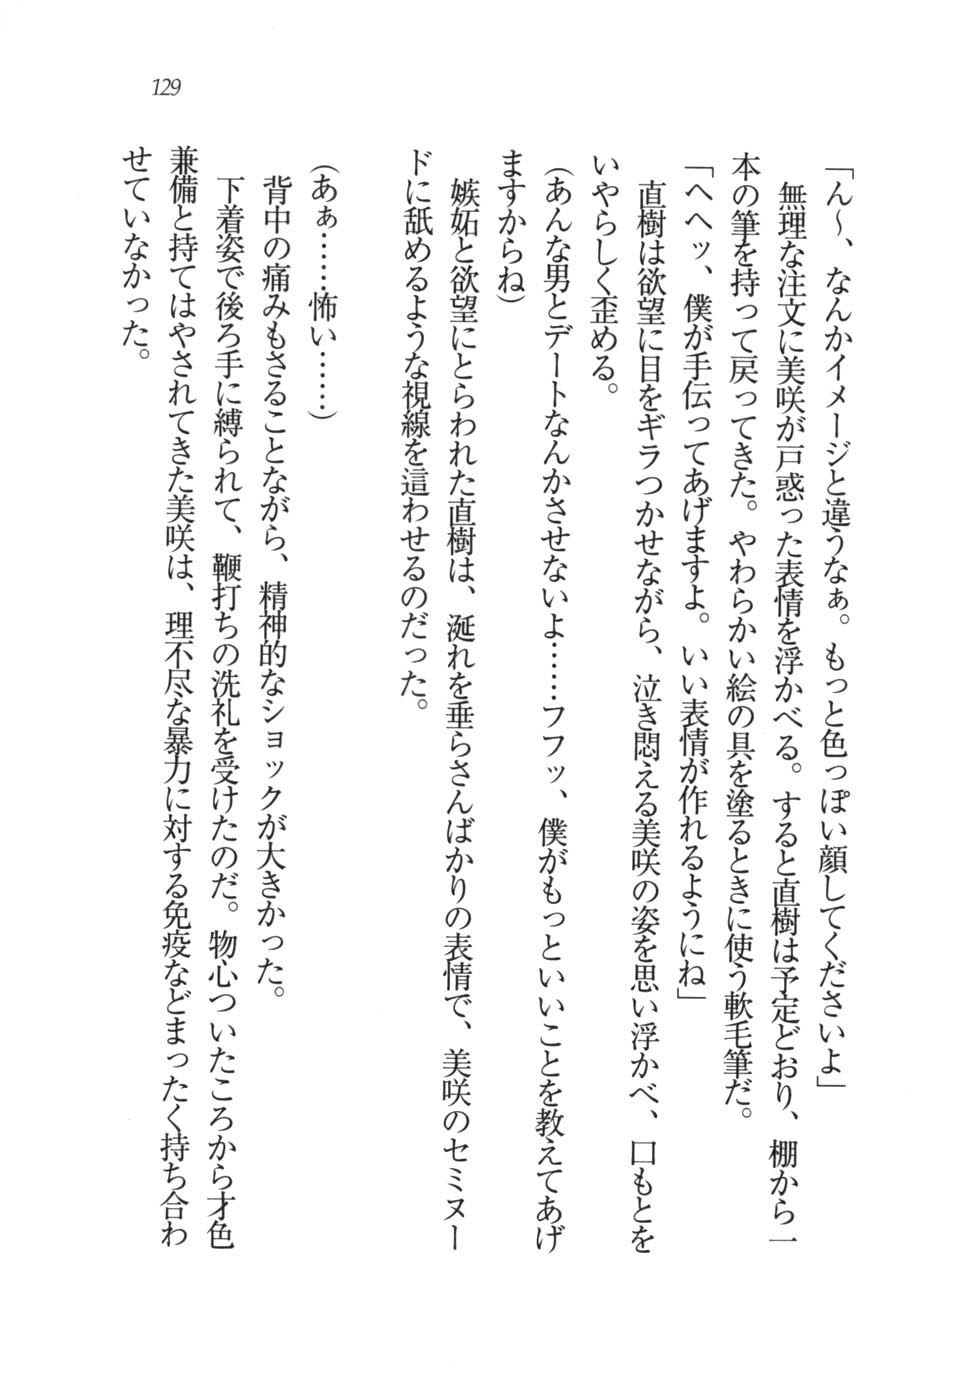 129
「ん～、なんかイメージと違うなぁ。もっと色っぽい顔してくださいよ」
無理な注文に美咲が戸惑った表情を浮かべる。すると直樹は予定どおり、棚から一
本の筆を持って戻ってきた。やわらかい絵の具を塗るときに使う軟毛筆だ。
「へヘッ、僕が手伝ってあげますよ。いい表情が作れるようにね」
直樹は欲望に目をギラつかせながら、泣き悶える美咲の姿を思い浮かべ、口もとを
いやらしく歪める。
(あんな男とデートなんかさせないよ……フフッ、僕がもっといいことを教えてあげ
ますからね)
嫉妬と欲望にとらわれた直樹は、涎れを垂らさんばかりの表情で、美咲のセミヌー
ドに舐めるような視線を這わせるのだった。
(あぁ……怖い……)
背中の痛みもさることながら、精神的なショックが大きかった。
下着姿で後ろ手に縛られて、鞭打ちの洗礼を受けたのだ。物心ついたころから才色
兼備と持てはやされてきた美咲は、理不尽な暴力に対する免疫などまったく持ち合わ
せていなかった。